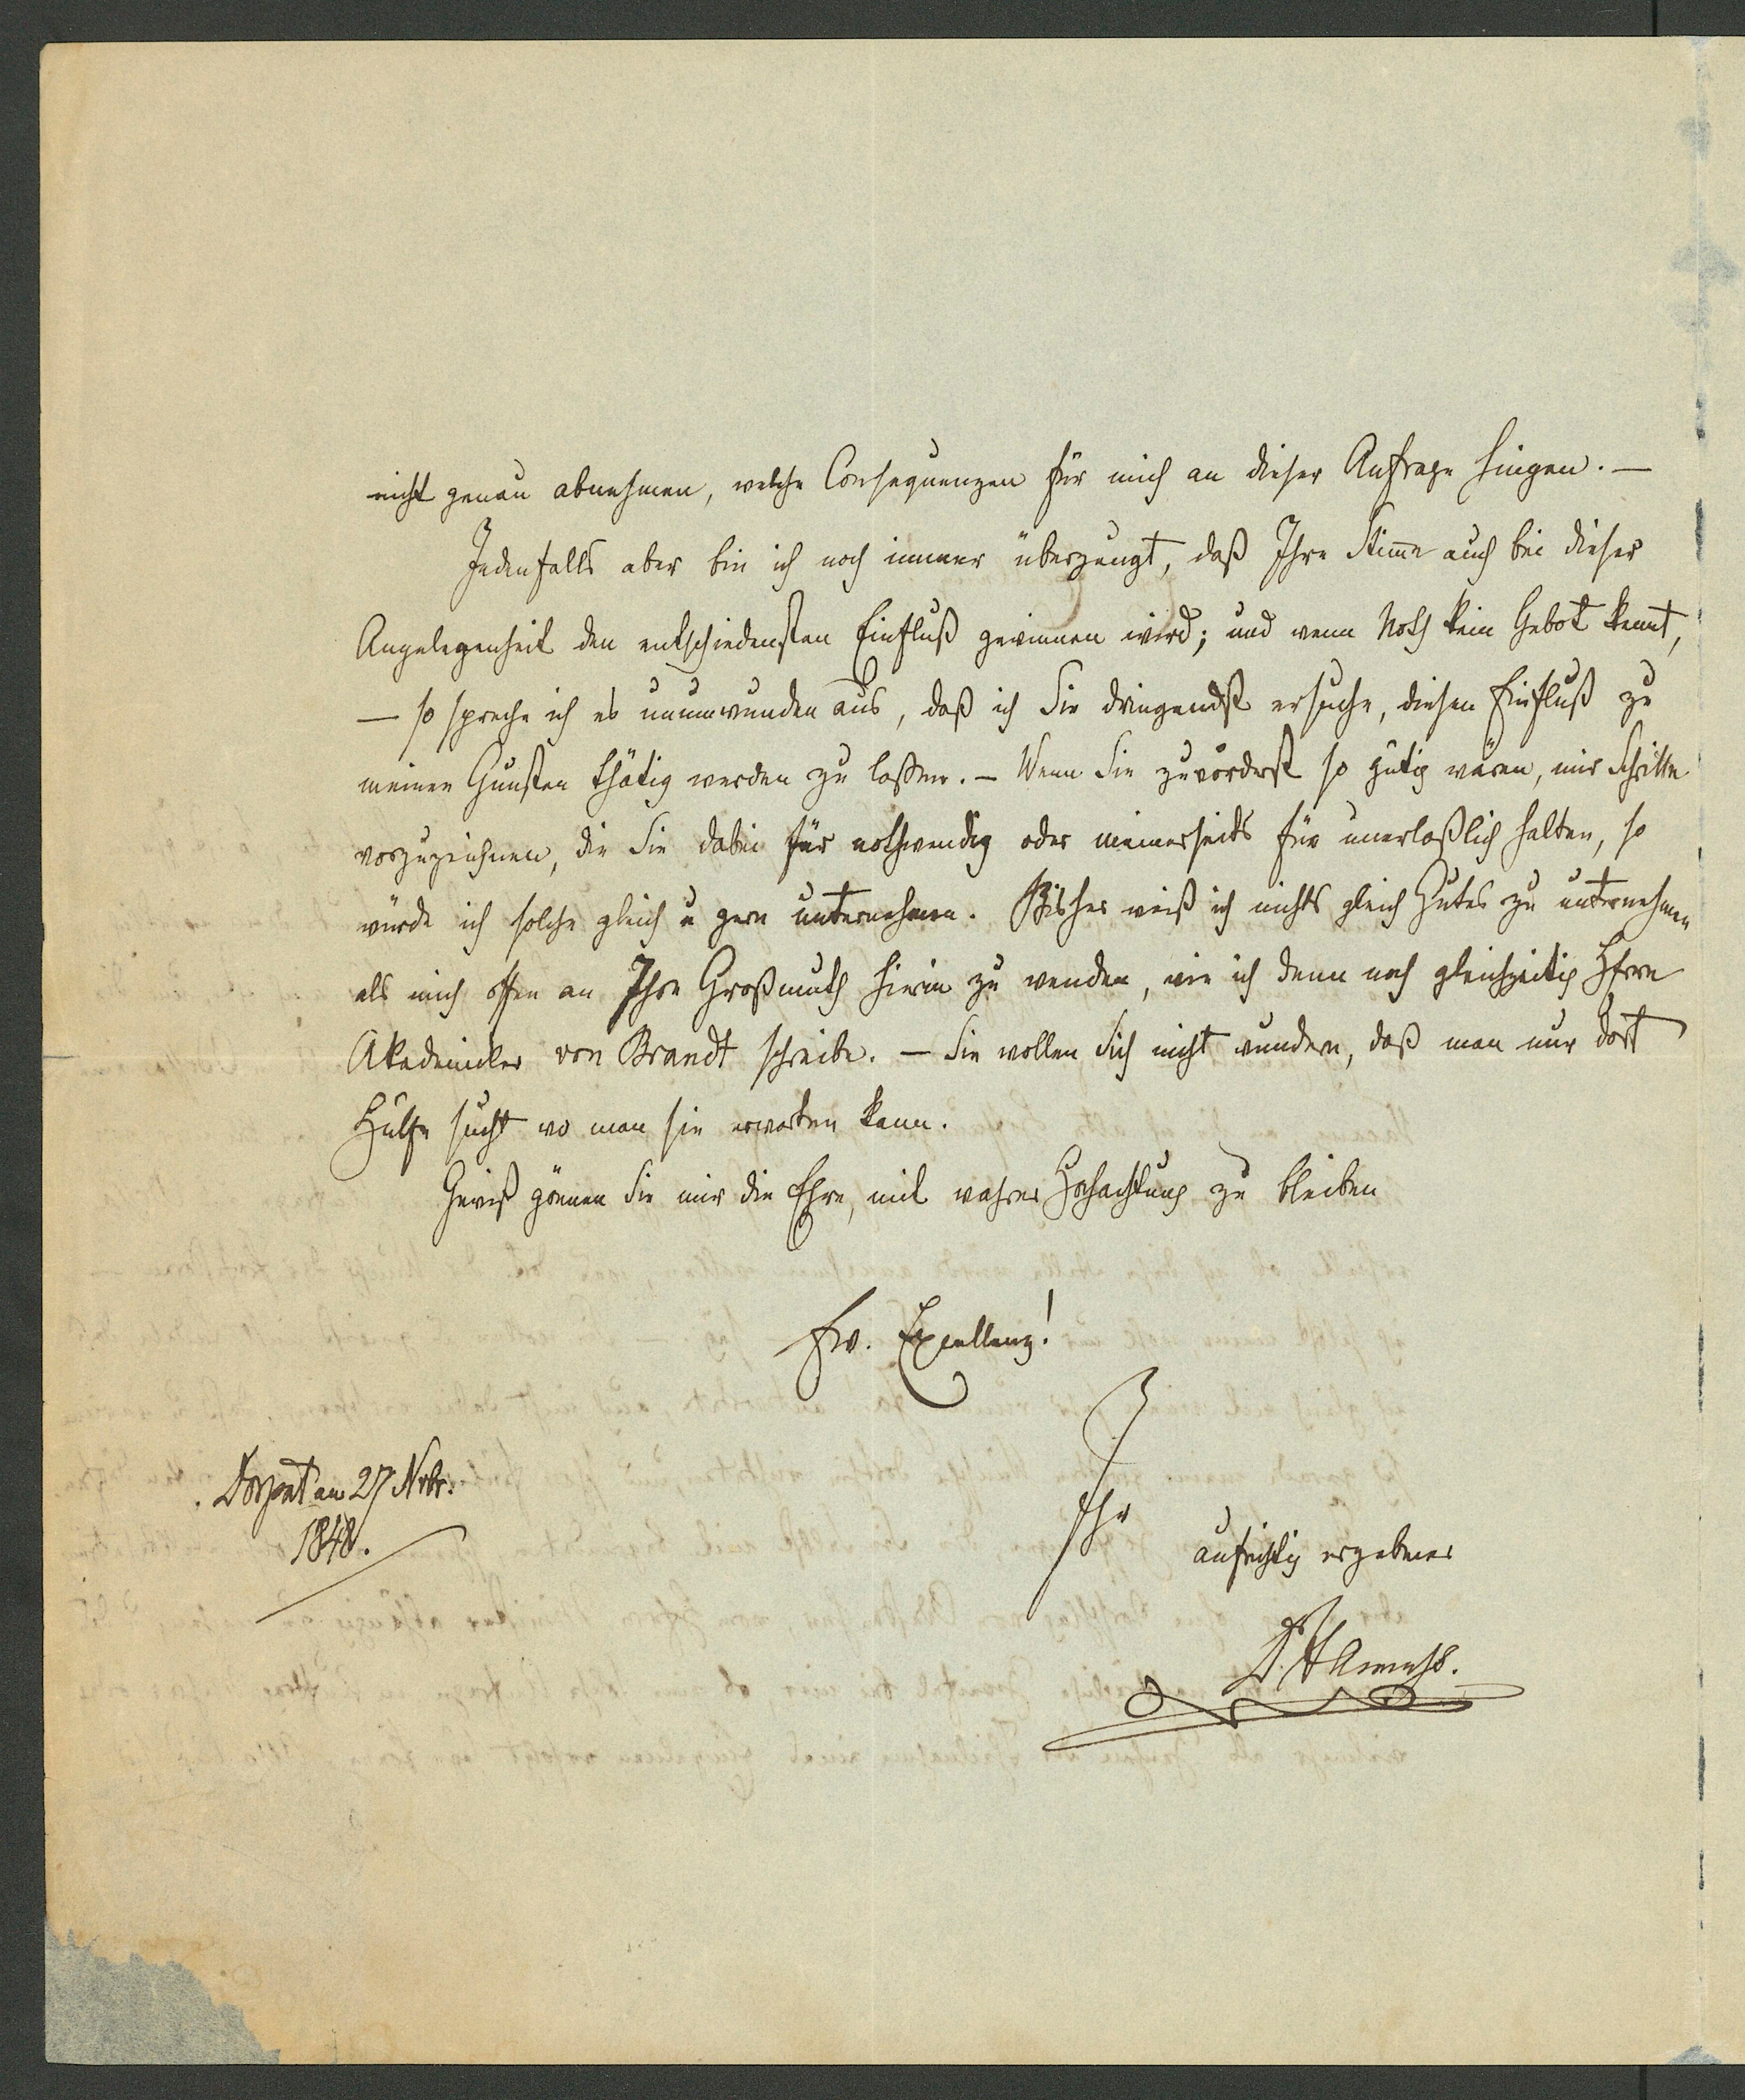 nicht genau abnehmen, welche Consequenzen für mich an dieser Anfrage hingen. —
Jedenfalls aber bin ich noch immer überzeugt, daß Ihre Stimme auch bei dieser
Angelegenheit den entschiedensten Einfluß gewinnen wird; und wenn Noth kein Gebot kennt,
— so spreche ich es unumwunden aus, daß ich Sie dringendst ersuche, diesen Einfluß zu
meinen Gunsten thätig werden zu lassen. — Wenn Sie zuvörderst so gütig wären, mir Schritte
vorzuzeichnen, die Sie dabei für nothwendig oder meinerseits für unerlaßlich halten, so
würde ich solche gleich u gern unternehmen. Bisher weiß ich nichts gleich Gutes zu unternehmen
als mich offen an Ihre Großmuth hierin zu wenden, wie ich denn noch gleichzeitig Hrrn
Akademiker von Brandt schreibe. — Sie wollen Sich nicht wundern, daß man nur dort
Hülfe sucht wo man sie erwarten kann.
Gewiß gönnen Sie mir die Ehre, mit wahrer Hochachtung zu bleiben
Ew. Excellenz!
Dorpat am 27 Nvbr.
1848.
Ihr
aufrichtig ergebener